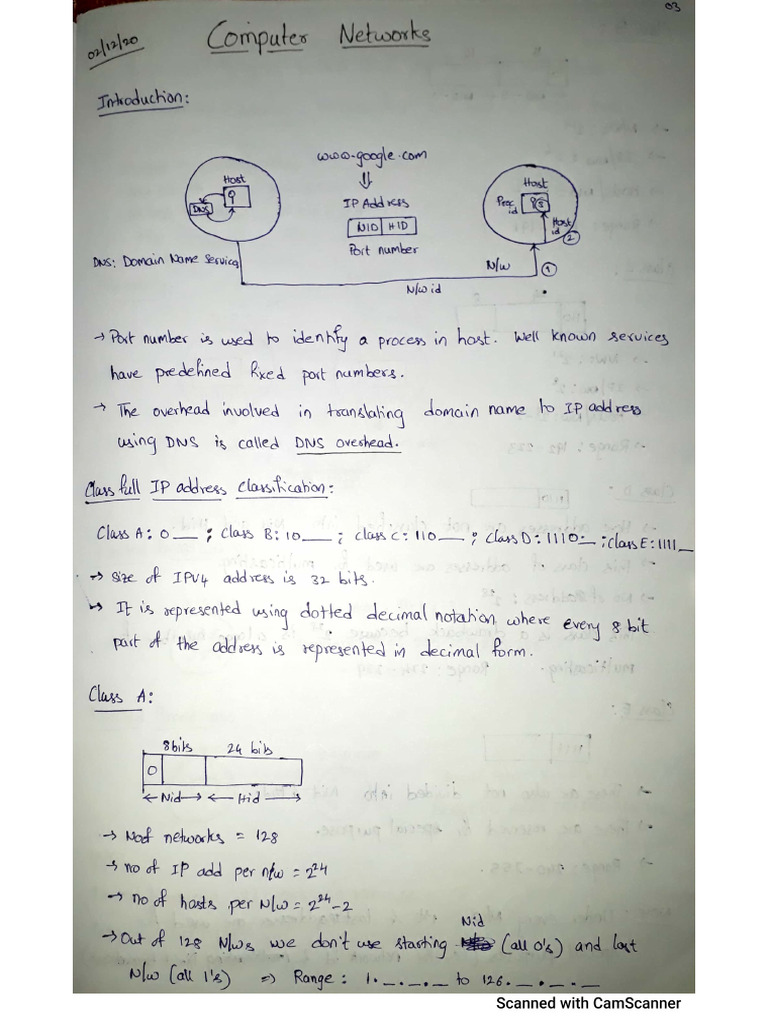 03
02/12/20
Computer Networks
Introduction:
www.google.com
⇓
IP Address
NID HID
Port number
Host
DNS
Host
Proc id
Host id
③
②
①
N/w
DNS: Domain Name Service
N/w id
→ Port number is used to identify a process in host. Well known services
have predefined fixed port numbers.
→ The overhead involved in translating domain name to IP address
using DNS is called DNS overhead.
Classfull IP address classification:
Class A: 0__ ; Class B: 10__ ; class C: 110__ ; Class D: 1110_ ; Class E: 1111_
→ Size of IPV4 address is 32 bits.
→ It is represented using dotted decimal notation where every 8 bit
part of the address is represented in decimal form.
Class A:
8bits 24 bits
0
← Nid → ← Hid →
→ No of networks = 128
→ no of IP add per n/w = 2²⁴
→ no of hosts per N/w = 2²⁴-2
Nid
→ Out of 128 N/ws we don't use starting (all 0's) and last
N/w (all 1's) ⇒ Range: 1._._._ to 126._._._
Scanned with CamScanner